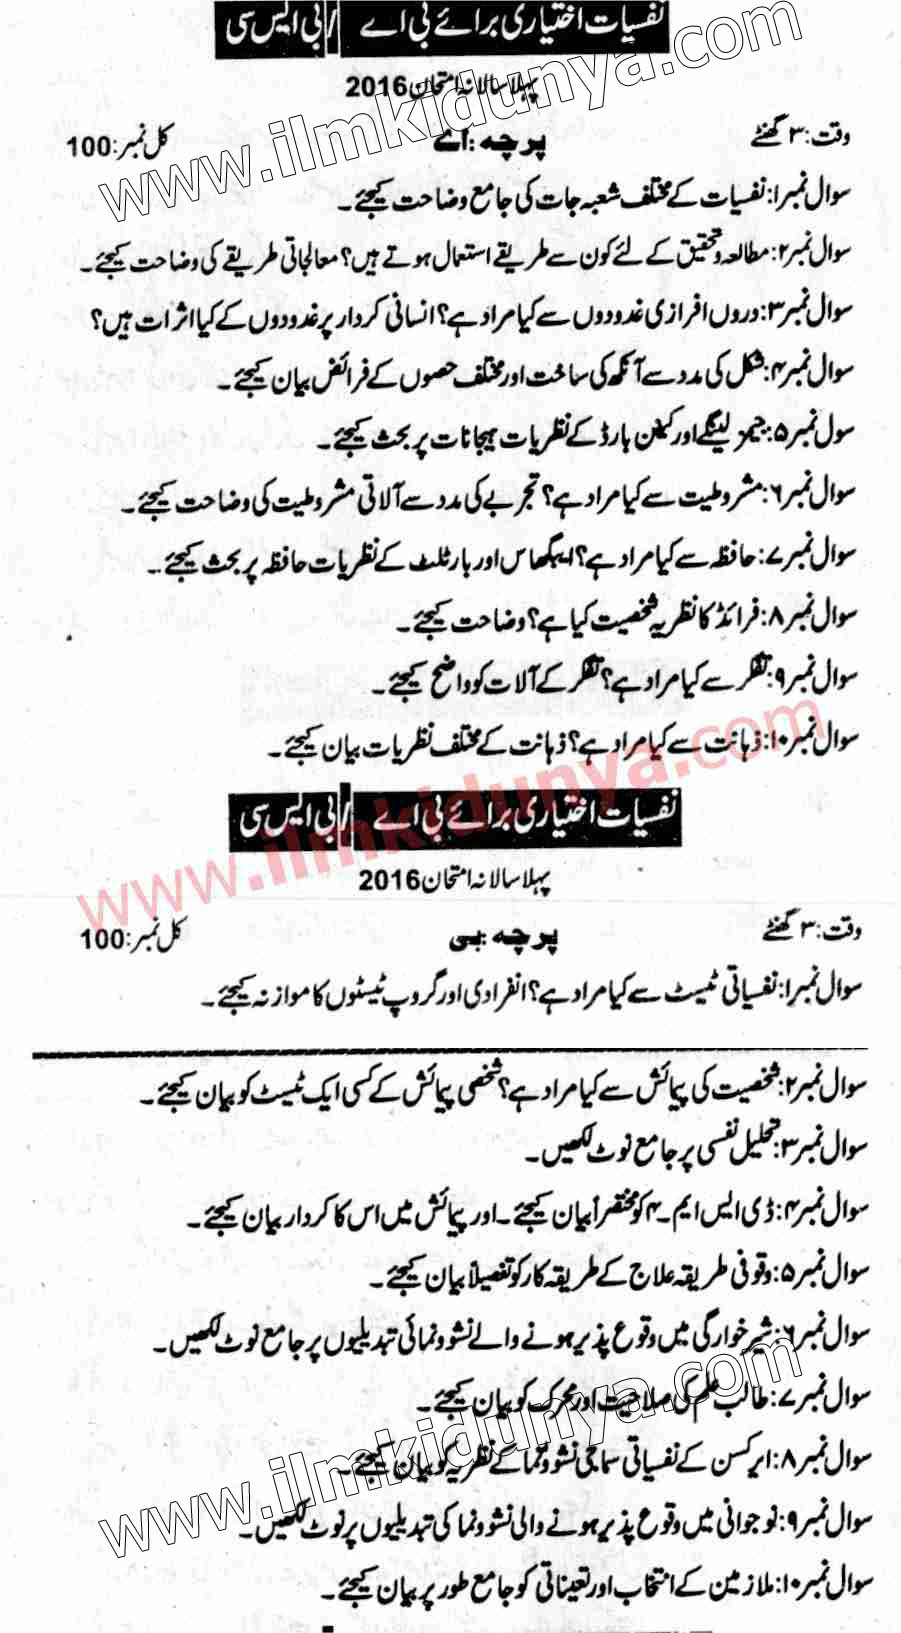 نفسیات اختیاری برائے بی اے / بی ایس سی
پہلا سالانہ امتحان 2016
وقت: ۳ گھنٹے پرچہ: اے کل نمبر: 100
سوال نمبر۱: نفسیات کے مختلف شعبہ جات کی جامع وضاحت کیجئے۔
سوال نمبر۲: مطالعہ و تحقیق کے لئے کون سے طریقے استعمال ہوتے ہیں؟ معالجاتی طریقے کی وضاحت کیجئے۔
سوال نمبر۳: دروں افرازی غدودوں سے کیا مراد ہے؟ انسانی کردار پر غدودوں کے کیا اثرات ہیں؟
سوال نمبر۴: شکل کی مدد سے آنکھ کی ساخت اور مختلف حصوں کے فرائض بیان کیجئے۔
سول نمبر۵: جیمز لینگے اور کینن بارڈ کے نظریات ہیجانات پر بحث کیجئے۔
سوال نمبر۶: مشروطیت سے کیا مراد ہے؟ تجربے کی مدد سے آلاتی مشروطیت کی وضاحت کیجئے۔
سوال نمبر۷: حافظہ سے کیا مراد ہے؟ ایبگھاس اور بارٹلٹ کے نظریات حافظہ پر بحث کیجئے۔
سوال نمبر۸: فرائڈ کا نظریہ شخصیت کیا ہے؟ وضاحت کیجئے۔
سوال نمبر۹: تفکر سے کیا مراد ہے؟ تفکر کے آلات کو واضح کیجئے۔
سوال نمبر۱۰: ذہانت سے کیا مراد ہے؟ ذہانت کے مختلف نظریات بیان کیجئے۔
نفسیات اختیاری برائے بی اے / بی ایس سی
پہلا سالانہ امتحان 2016
وقت: ۳ گھنٹے پرچہ: بی کل نمبر: 100
سوال نمبر۱: نفسیاتی ٹیسٹ سے کیا مراد ہے؟ انفرادی اور گروپ ٹیسٹوں کا موازنہ کیجئے۔
سوال نمبر۲: شخصیت کی پیمائش سے کیا مراد ہے؟ شخصی پیمائش کے کسی ایک ٹیسٹ کو بیان کیجئے۔
سوال نمبر۳: تحلیل نفسی پر جامع نوٹ لکھیں۔
سوال نمبر۴: ڈی ایس ایم۔۴ کو مختصراً بیان کیجئے۔ اور پیمائش میں اس کا کردار بیان کیجئے۔
سوال نمبر۵: وقوفی طریقہ علاج کے طریقہ کار کو تفصیلاً بیان کیجئے۔
سوال نمبر۶: شیر خوارگی میں وقوع پذیر ہونے والے نشوونمائی تبدیلیوں پر جامع نوٹ لکھیں۔
سوال نمبر۷: طالب علم کی صلاحیت اور محرک کو بیان کیجئے۔
سوال نمبر۸: ایرکسن کے نفسیاتی سماجی نشوونما کے نظریہ کو بیان کیجئے۔
سوال نمبر۹: نوجوانی میں وقوع پذیر ہونے والی نشوونما کی تبدیلیوں پر نوٹ لکھیں۔
سوال نمبر۱۰: ملازمین کے انتخاب اور تعیناتی کو جامع طور پر بیان کیجئے۔
www.ilmkidunya.com
www.ilmkidunya.com
www.ilmkidunya.com